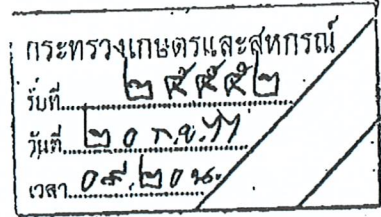 กระทรวงเกษตรและสหกรณ์
รับที่ ๒๕๕๕๒
วันที่ ๒๐ ก.ย. ๖๖
เวลา ๐๙.๒๐ น.